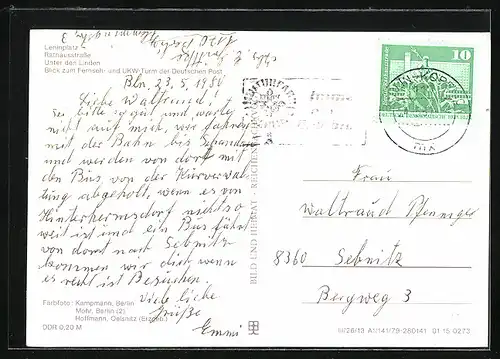 Leninplatz
Rathausstraße
Unter den Linden
Blick zum Fernseh- und UKW-Turm der Deutschen Post
Bln. 23. 5. 1980
Liebe Waltraud!
Sei bitte so gut und warte
nicht auf mich, wir fahren
mit der Bahn bis Schandau
und werden von dort mit
den Bus von der Kurverwal-
tung abgeholt, wenn es von
Hinterhermsdorf nicht so
weit ist und ein Bus fährt
von dort nach Sebnitz
kommen wir dich wenn
es recht ist besuchen.
Viele liebe
Grüße
Emmi
Farbfoto: Kampmann, Berlin
Mohr, Berlin (2)
Hoffmann, Oelsnitz (Erzgeb.)
DDR 0,20 M
BILD UND HEIMAT REICHENBACH
10
Frau
Waltraud Pfenniger
8360 Sebnitz
Bergweg 3
III/26/13 A1/141/79-280141 01 15 0273